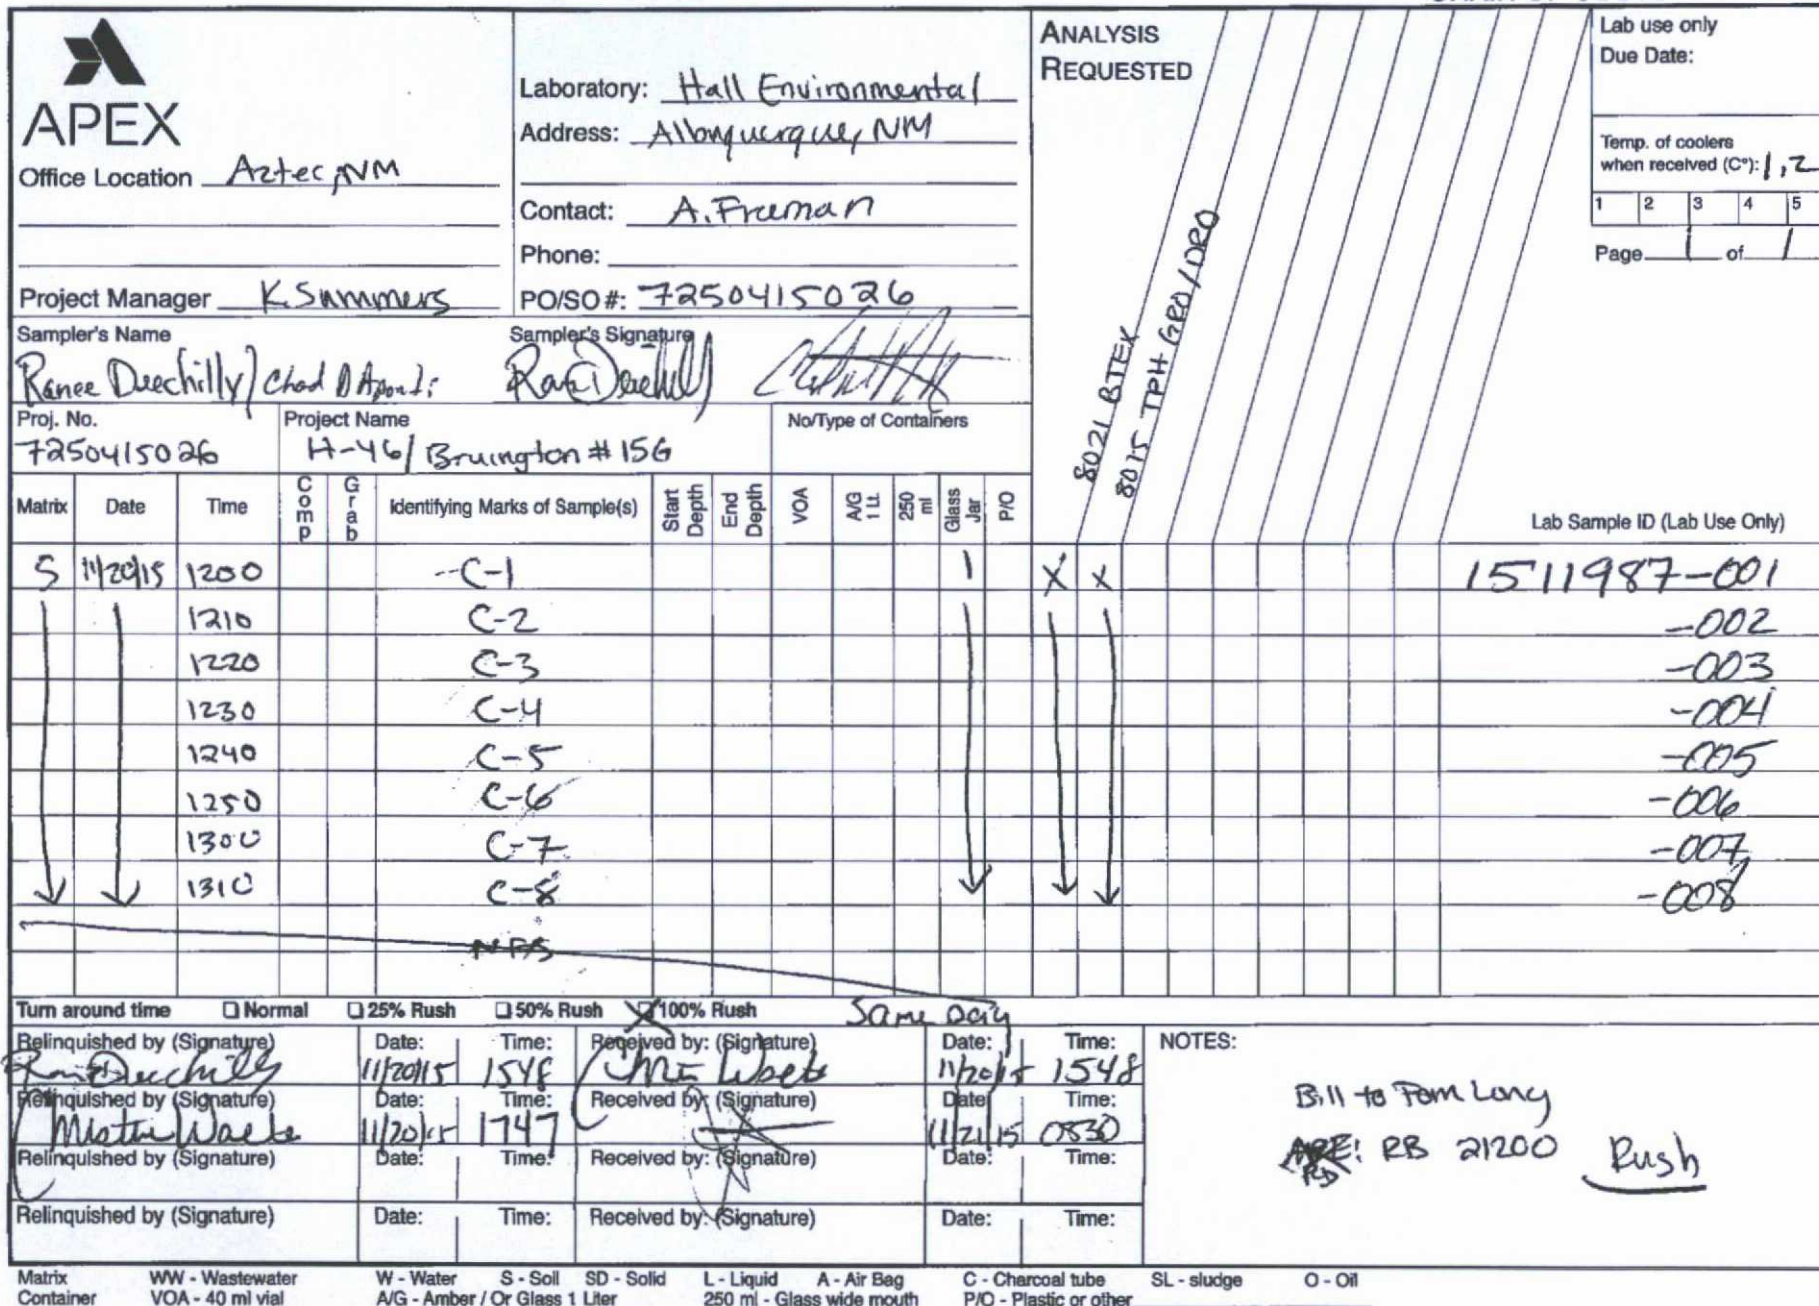 APEX
Office Location Aztec, NM
Project Manager K. Summers
Laboratory: Hall Environmental
Address: Albuquerque, NM
Contact: A. Freeman
Phone:
PO/SO #: 7250415026
ANALYSIS
REQUESTED
8021 BTEX
8015 TPH GRO/DRO
Lab use only
Due Date:
Temp. of coolers
when received (C°): 1.2
1 2 3 4 5
Page 1 of 1
Sampler's Name
Ranee Deechilly / Chad
Sampler's Signature
Proj. No.
7250415026
Project Name
H-46/ Bruington # 15G
No/Type of Containers
Matrix Date Time Comp Grab Identifying Marks of Sample(s) Start Depth End Depth VOA A/G 1 Lt. 250 ml Glass Jar P/O Lab Sample ID (Lab Use Only)
S 11/20/15 1200 C-1 1 X X 1511987-001
1210 C-2 -002
1220 C-3 -003
1230 C-4 -004
1240 C-5 -005
1250 C-6 -006
1300 C-7 -007
1310 C-8 -008
NFS
Turn around time Normal 25% Rush 50% Rush X 100% Rush Same Day
Relinquished by (Signature) Date: Time: Received by: (Signature) Date: Time: NOTES:
11/20/15 1548 11/20/15 1548
Relinquished by (Signature) Date: Time: Received by: (Signature) Date: Time:
11/20/15 1747 11/21/15 0830
Relinquished by (Signature) Date: Time: Received by: (Signature) Date: Time:
Relinquished by (Signature) Date: Time: Received by: (Signature) Date: Time:
Bill to Tom Long
RB 21200 Rush
Matrix WW - Wastewater W - Water S - Soil SD - Solid L - Liquid A - Air Bag C - Charcoal tube SL - sludge O - Oil
Container VOA - 40 ml vial A/G - Amber / Or Glass 1 Liter 250 ml - Glass wide mouth P/O - Plastic or other